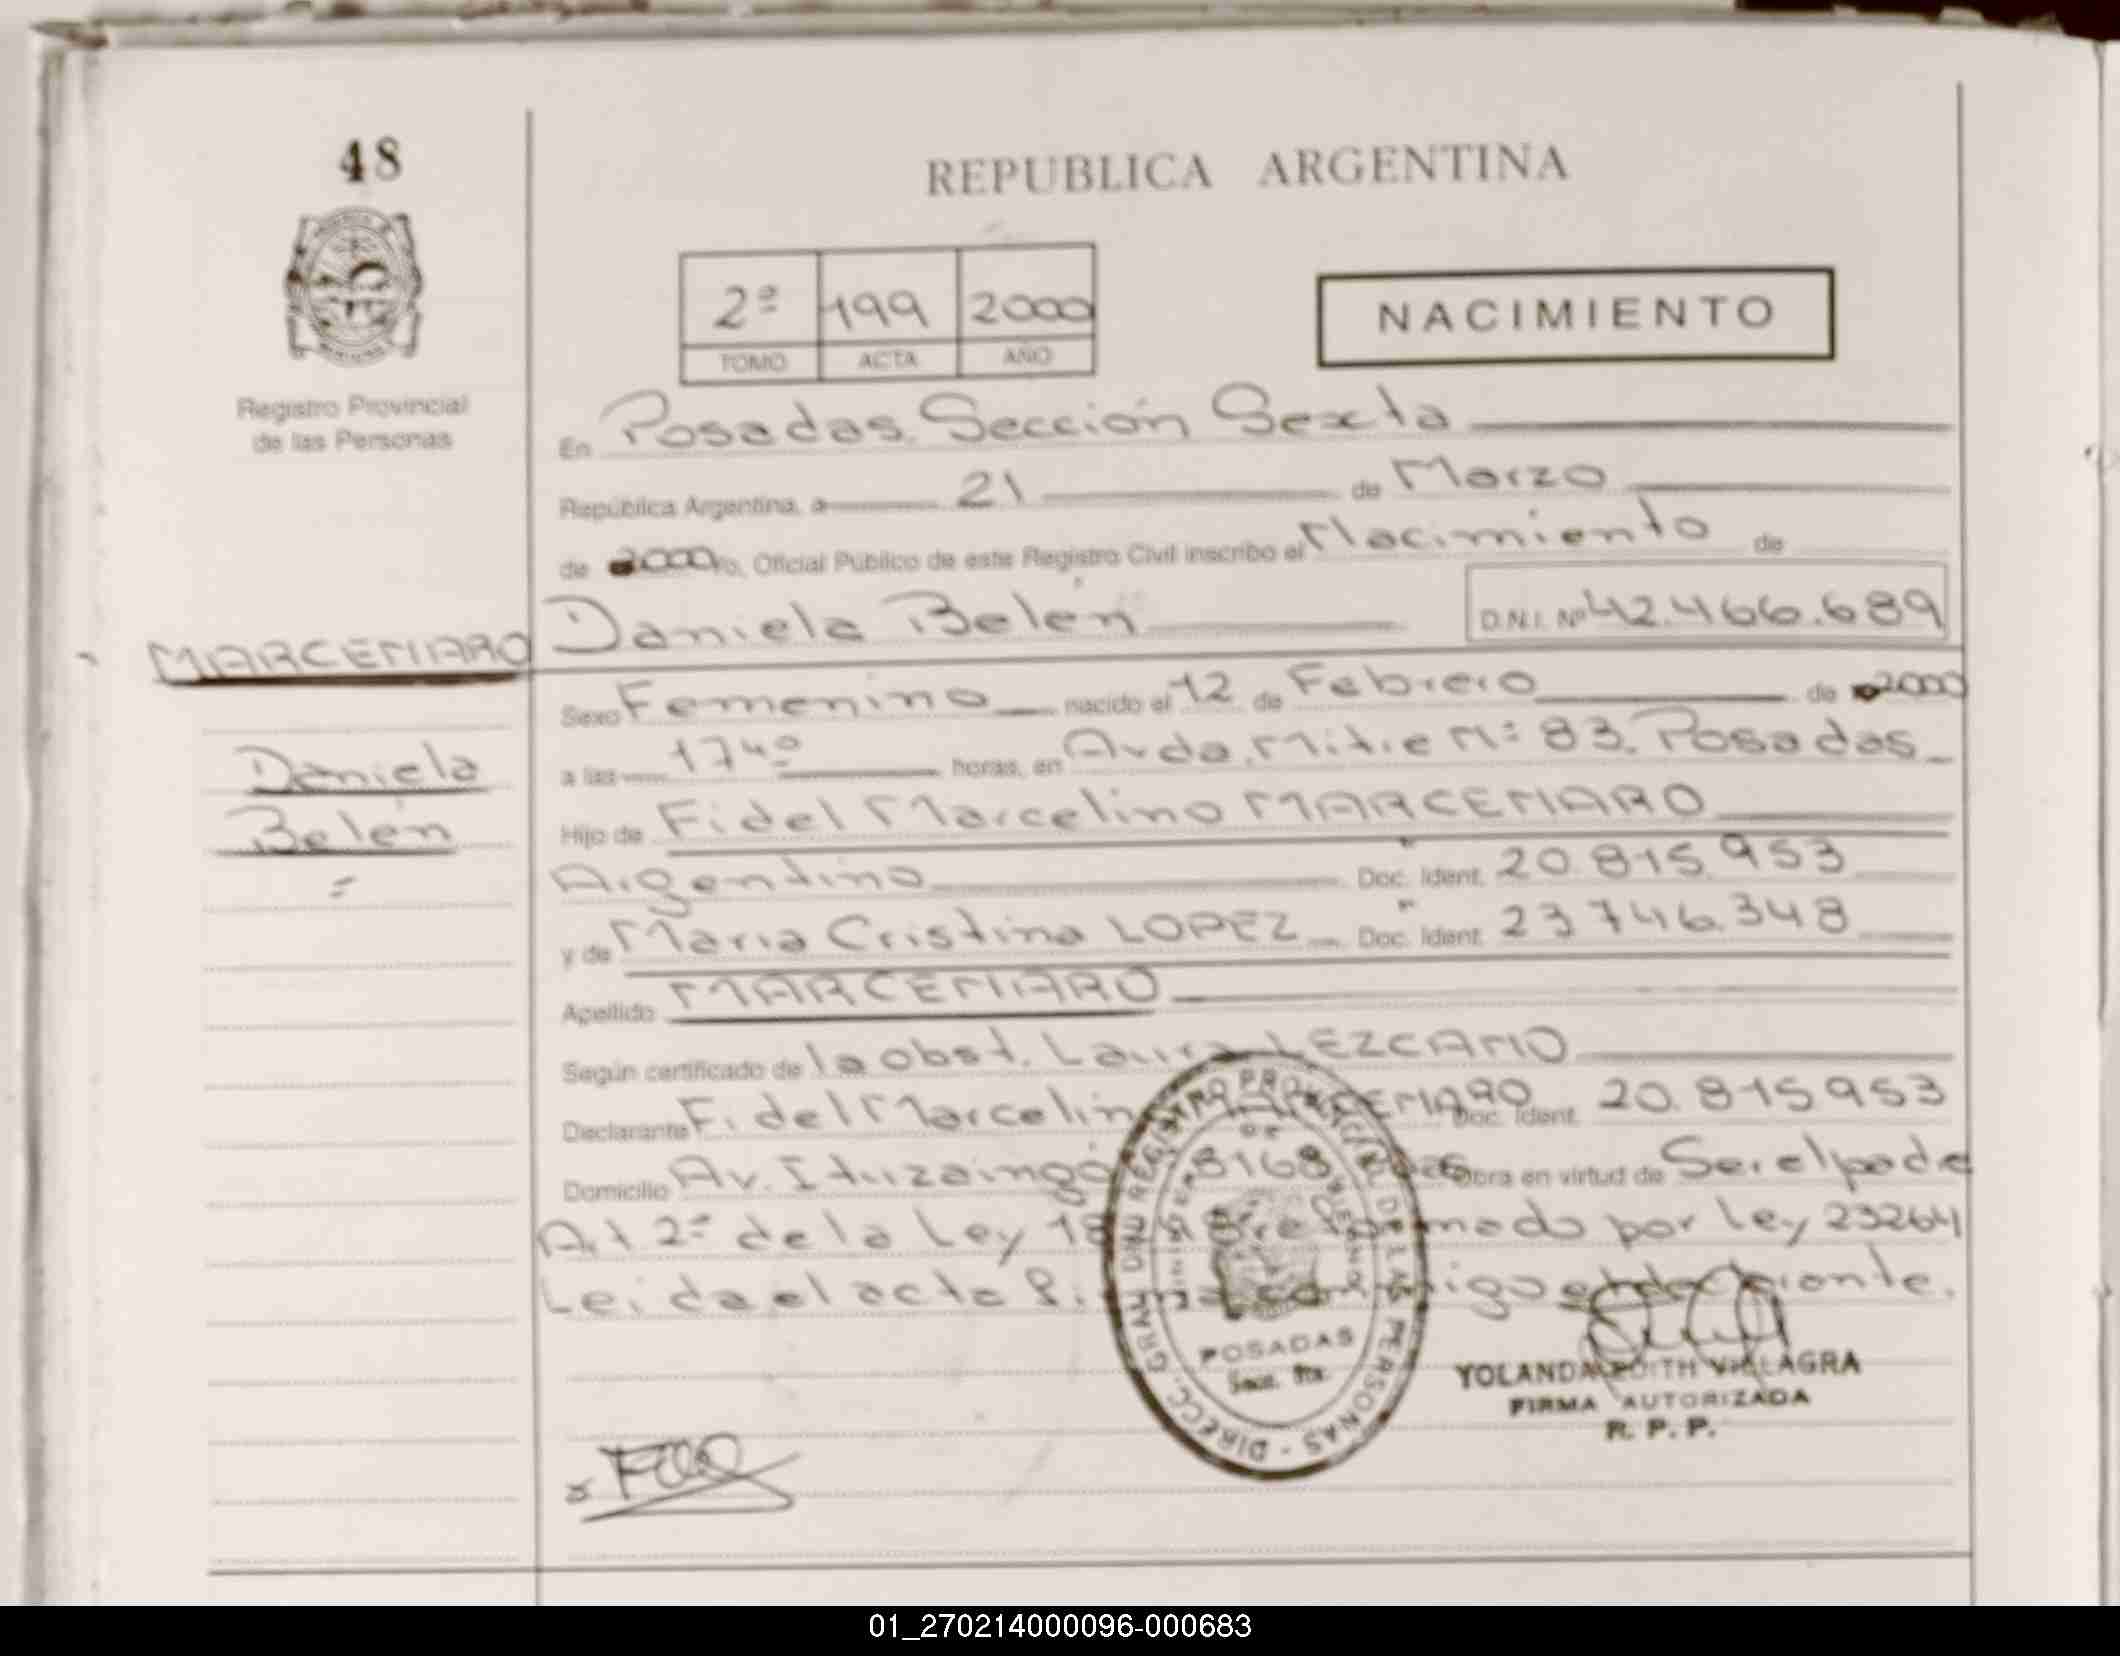 48
REPUBLICA ARGENTINA
2º 199 2000
TOMO ACTA AÑO
NACIMIENTO
Registro Provincial
de las Personas
En Posadas. Sección Sexta
República Argentina, a 21 de Marzo
de 2000 Yo, Oficial Público de este Registro Civil inscribo el Nacimiento de
MARCENARO Daniela Belén D.N.I. Nº 42.466.689
Sexo Femenino nacido el 12 de Febrero de 2000
Daniela
a las 17⁴⁰ horas, en Avda. Mitre Nº 83. Posadas
Belén
Hijo de Fidel Marcelino MARCENARO
Argentino Doc. Ident. 20.815.953
y de Maria Cristina LOPEZ Doc. Ident. 23.746.348
Apellido MARCENARO
Según certificado de la obst. Laura LEZCANO
Declarante Fidel Marcelino MARCENARO Doc. Ident. 20.815.953
Domicilio Av. Ituzaingó 8168 Obra en virtud de Ser el padre
Art 2º de la Ley reformado por Ley 23264
Leida el acta conmigo el declarante.
DIRECC. GRAL. DEL REGISTRO PROVINCIAL DE LAS PERSONAS
MINISTERIO DE GOBIERNO
POSADAS
Secc. 6ta.
YOLANDA EDITH VILLAGRA
FIRMA AUTORIZADA
R. P. P.
01_270214000096-000683